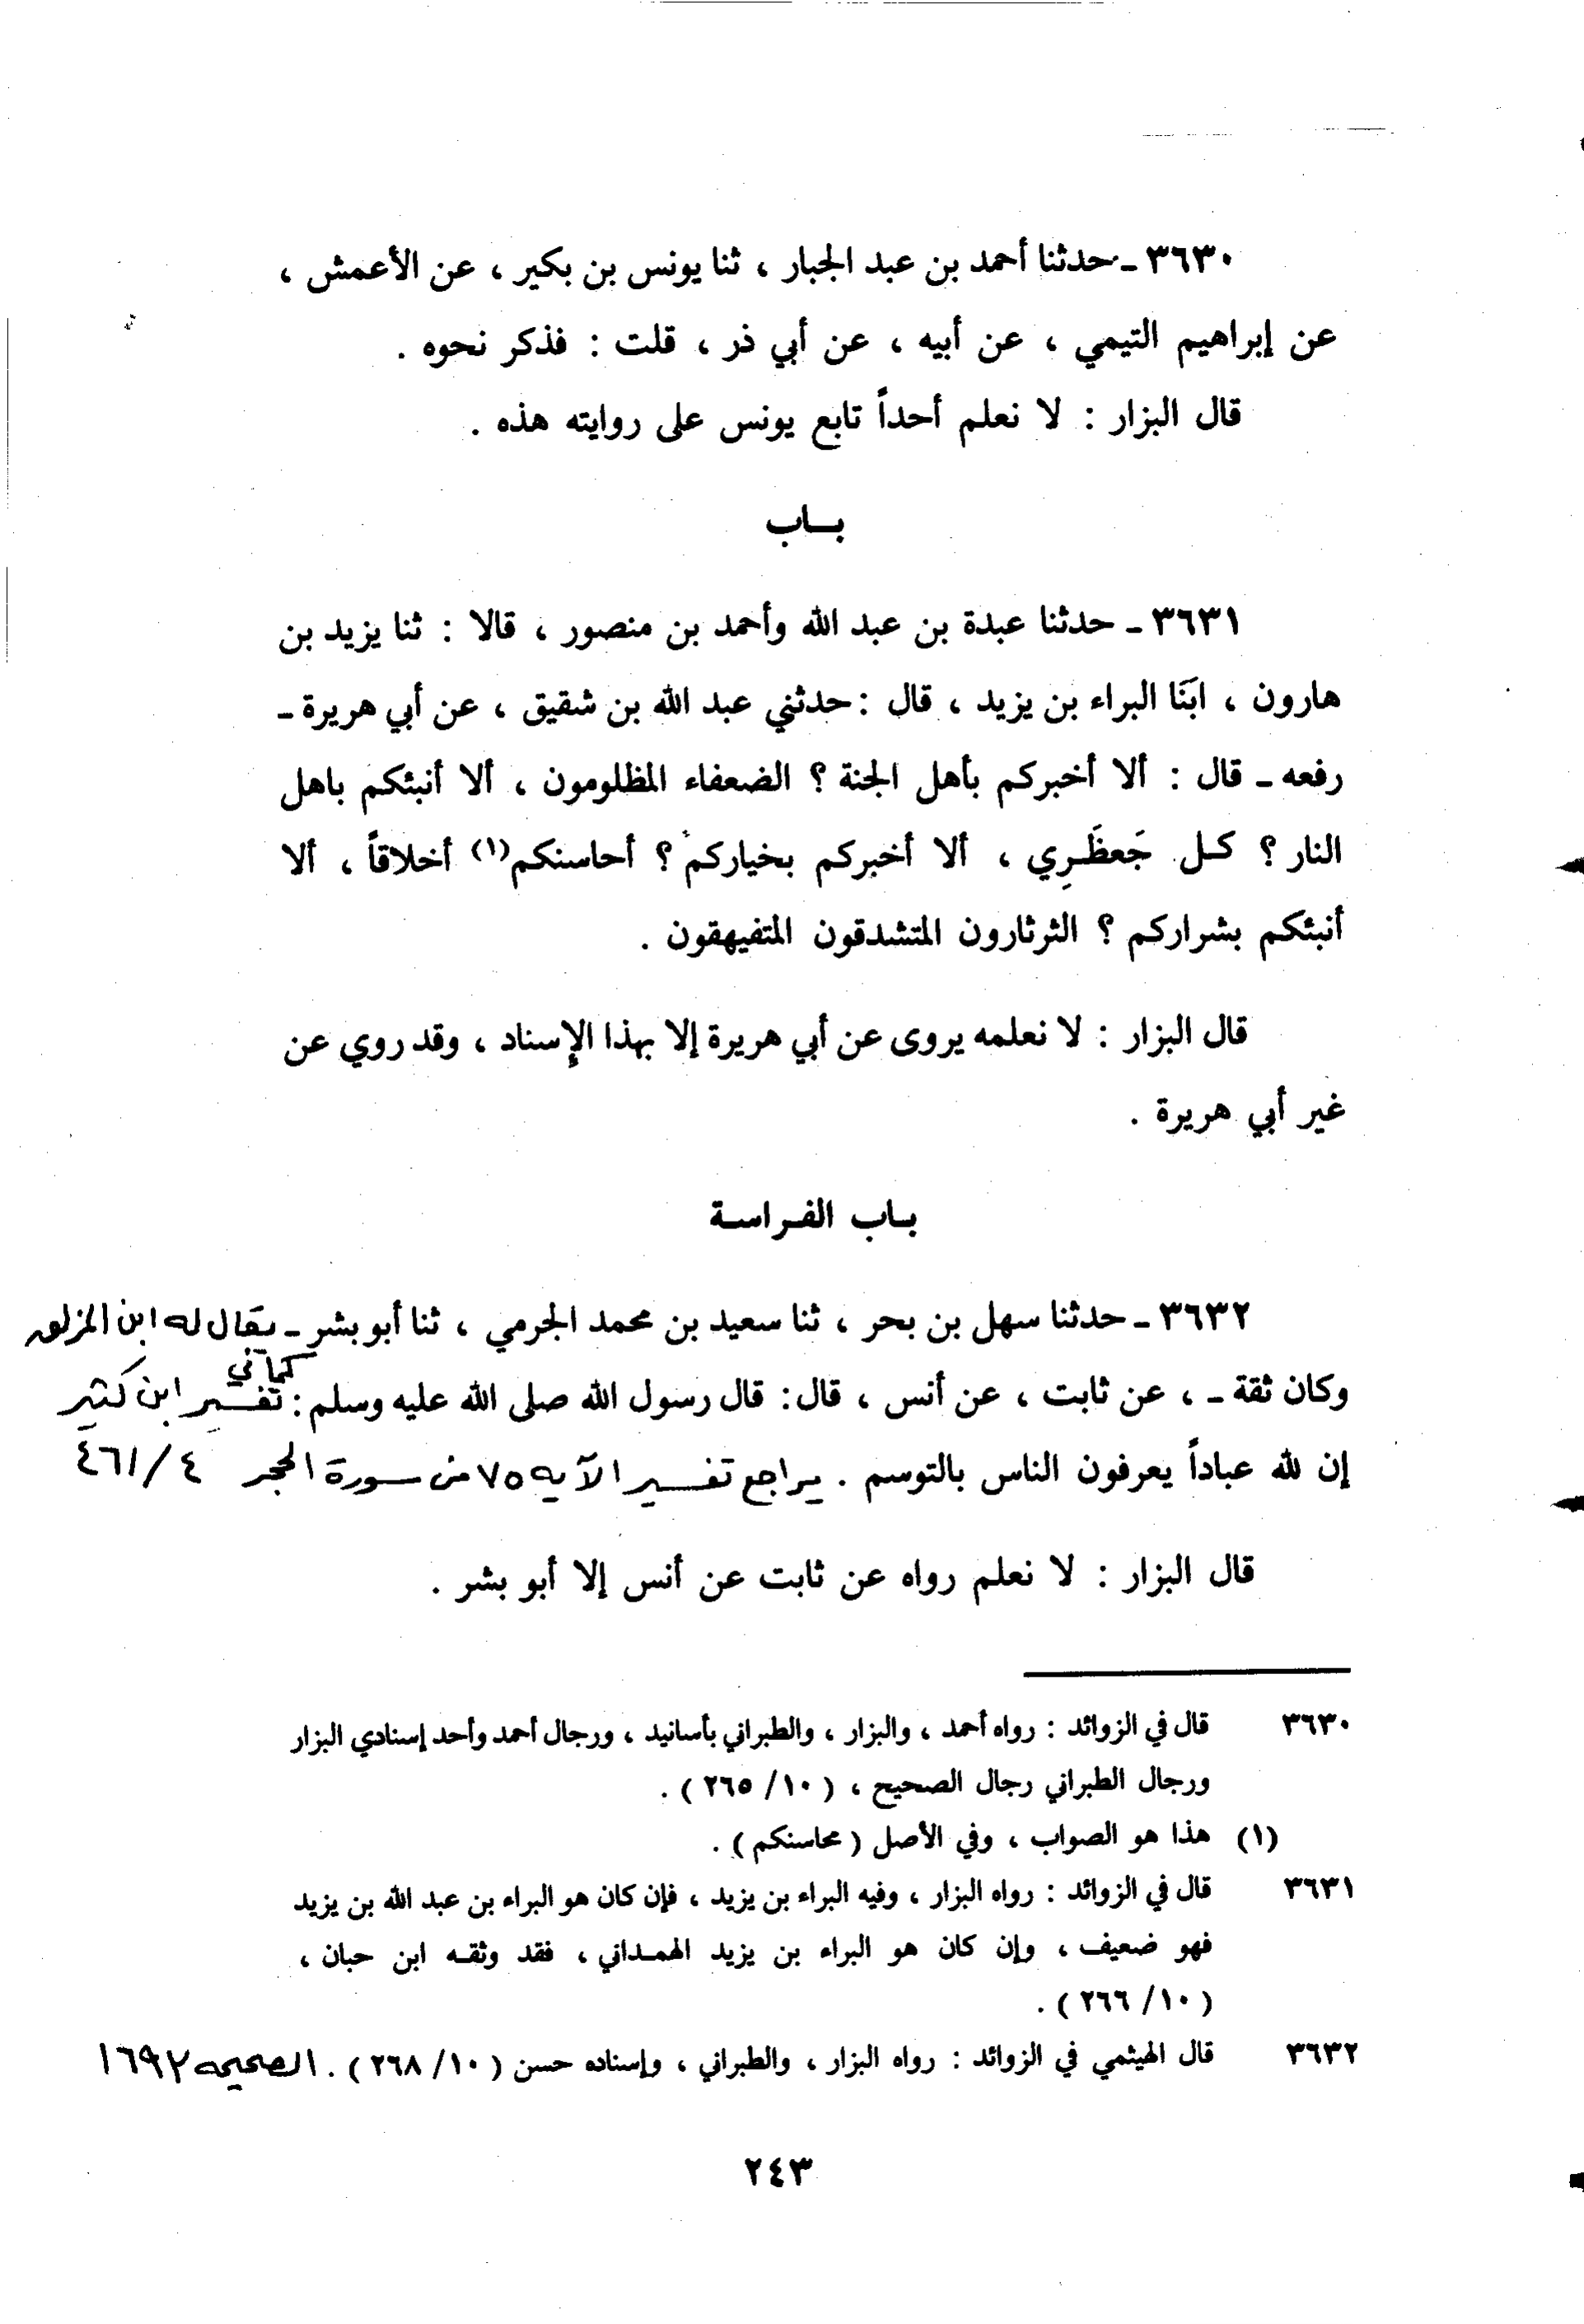 ٣٦٣٠ ـ حدثنا أحمد بن عبد الجبار ، ثنا يونس بن بكير ، عن الأعمش ،
عن إبراهيم التيمي ، عن أبيه ، عن أبي ذر ، قلت : فذكر نحوه .
قال البزار : لا نعلم أحداً تابع يونس على روايته هذه .
بــاب
٣٦٣١ ـ حدثنا عبدة بن عبد الله وأحمد بن منصور ، قالا : ثنا يزيد بن
هارون ، ابَنَا البراء بن يزيد ، قال : حدثني عبد الله بن شقيق ، عن أبي هريرة ـ
رفعه ـ قال : ألا أخبركم بأهل الجنة ؟ الضعفاء المظلومون ، ألا أنبئكم باهل
النار ؟ كـل جَعظَـرِي ، ألا أخبركم بخياركم ؟ أحاسنكم(١) أخلاقاً ، ألا
أنبئكم بشراركم ؟ الثرثارون المتشدقون المتفيهقون .
قال البزار : لا نعلمه يروى عن أبي هريرة إلا بهذا الإسناد ، وقد روي عن
غير أبي هريرة .
بـاب الفـراسـة
٣٦٣٢ ـ حدثنا سهل بن بحر ، ثنا سعيد بن محمد الجرمي ، ثنا أبو بشر ـ يقال له ابن المزلق
كما في
وكان ثقة ـ ، عن ثابت ، عن أنس ، قال : قال رسول الله صلى الله عليه وسلم : تفسير ابن كثير
إن لله عباداً يعرفون الناس بالتوسم . يراجع تفسير الآيه ٧٥ من سورة الحجر ٤/٤٦١
قال البزار : لا نعلم رواه عن ثابت عن أنس إلا أبو بشر .
٣٦٣٠ قال في الزوائد : رواه أحمد ، والبزار ، والطبراني بأسانيد ، ورجال أحمد وأحد إسنادي البزار
ورجال الطبراني رجال الصحيح ، ( ١٠/ ٢٦٥ ) .
(١) هذا هو الصواب ، وفي الأصل ( محاسنكم ) .
٣٦٣١ قال في الزوائد : رواه البزار ، وفيه البراء بن يزيد ، فإن كان هو البراء بن عبد الله بن يزيد
فهو ضعيف ، وإن كان هو البراء بن يزيد الهمـداني ، فقد وثقـه ابن حبان ،
( ١٠/ ٢٦٦ ) .
٣٦٣٢ قال الهيثمي في الزوائد : رواه البزار ، والطبراني ، وإسناده حسن ( ١٠/ ٢٦٨ ) . الصحيحه ١٦٩٢
٢٤٣